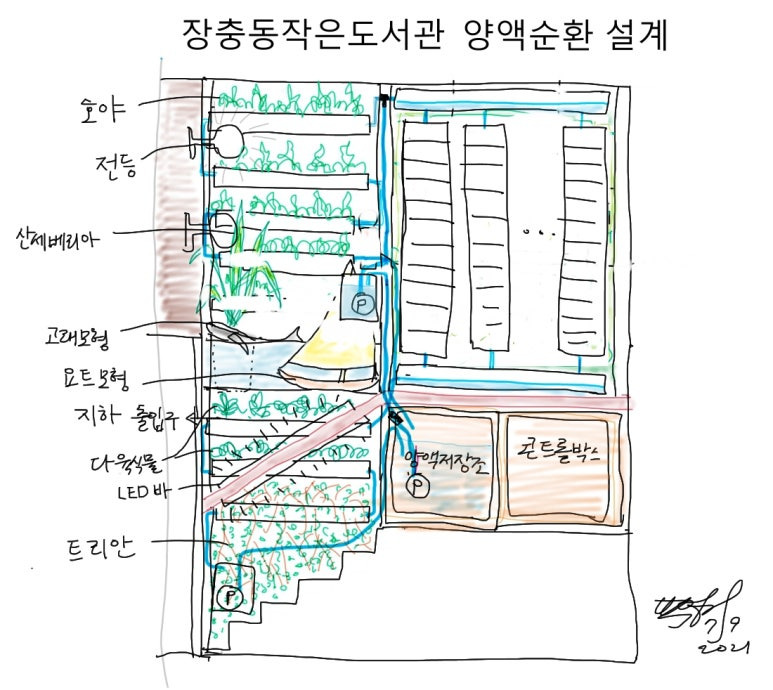 장충동작은도서관 양액순환 설계
호야
전등
산세베리아
고래모형
요트모형
지하 출입구
다육식물
LED바
트리안
P
양액저장조
P
콘트롤박스
P
7/9
2021